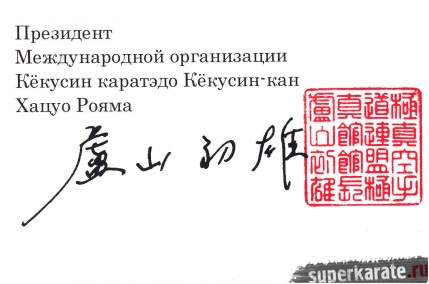 Президент
Международной организации
Кёкусин каратэдо Кёкусин-кан
Хацуо Рояма
盧山初雄
極真空手
道連盟極
真館館長
盧山初雄
superkarate.ru